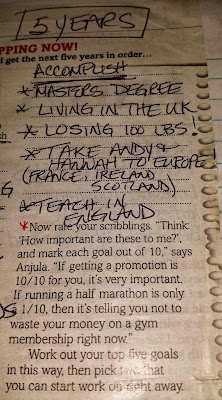 5 YEARS
PPING NOW!
d get the next five years in order…
ACCOMPLISH
* MASTERS DEGREE
* LIVING IN THE UK
sh
* LOSING 100 LBS!
* TAKE ANDY &
HANNAH TO EUROPE
(FRANCE, IRELAND
SCOTLAND)
* TEACH IN
ENGLAND
*Now rate your scribblings. "Think:
'How important are these to me?',
and mark each goal out of 10," says
Anjula. "If getting a promotion is
10/10 for you, it's very important.
If running a half marathon is only
1/10, then it's telling you not to
waste your money on a gym
membership right now."
Work out your top five goals
in this way, then pick two that
you can start work on right away.